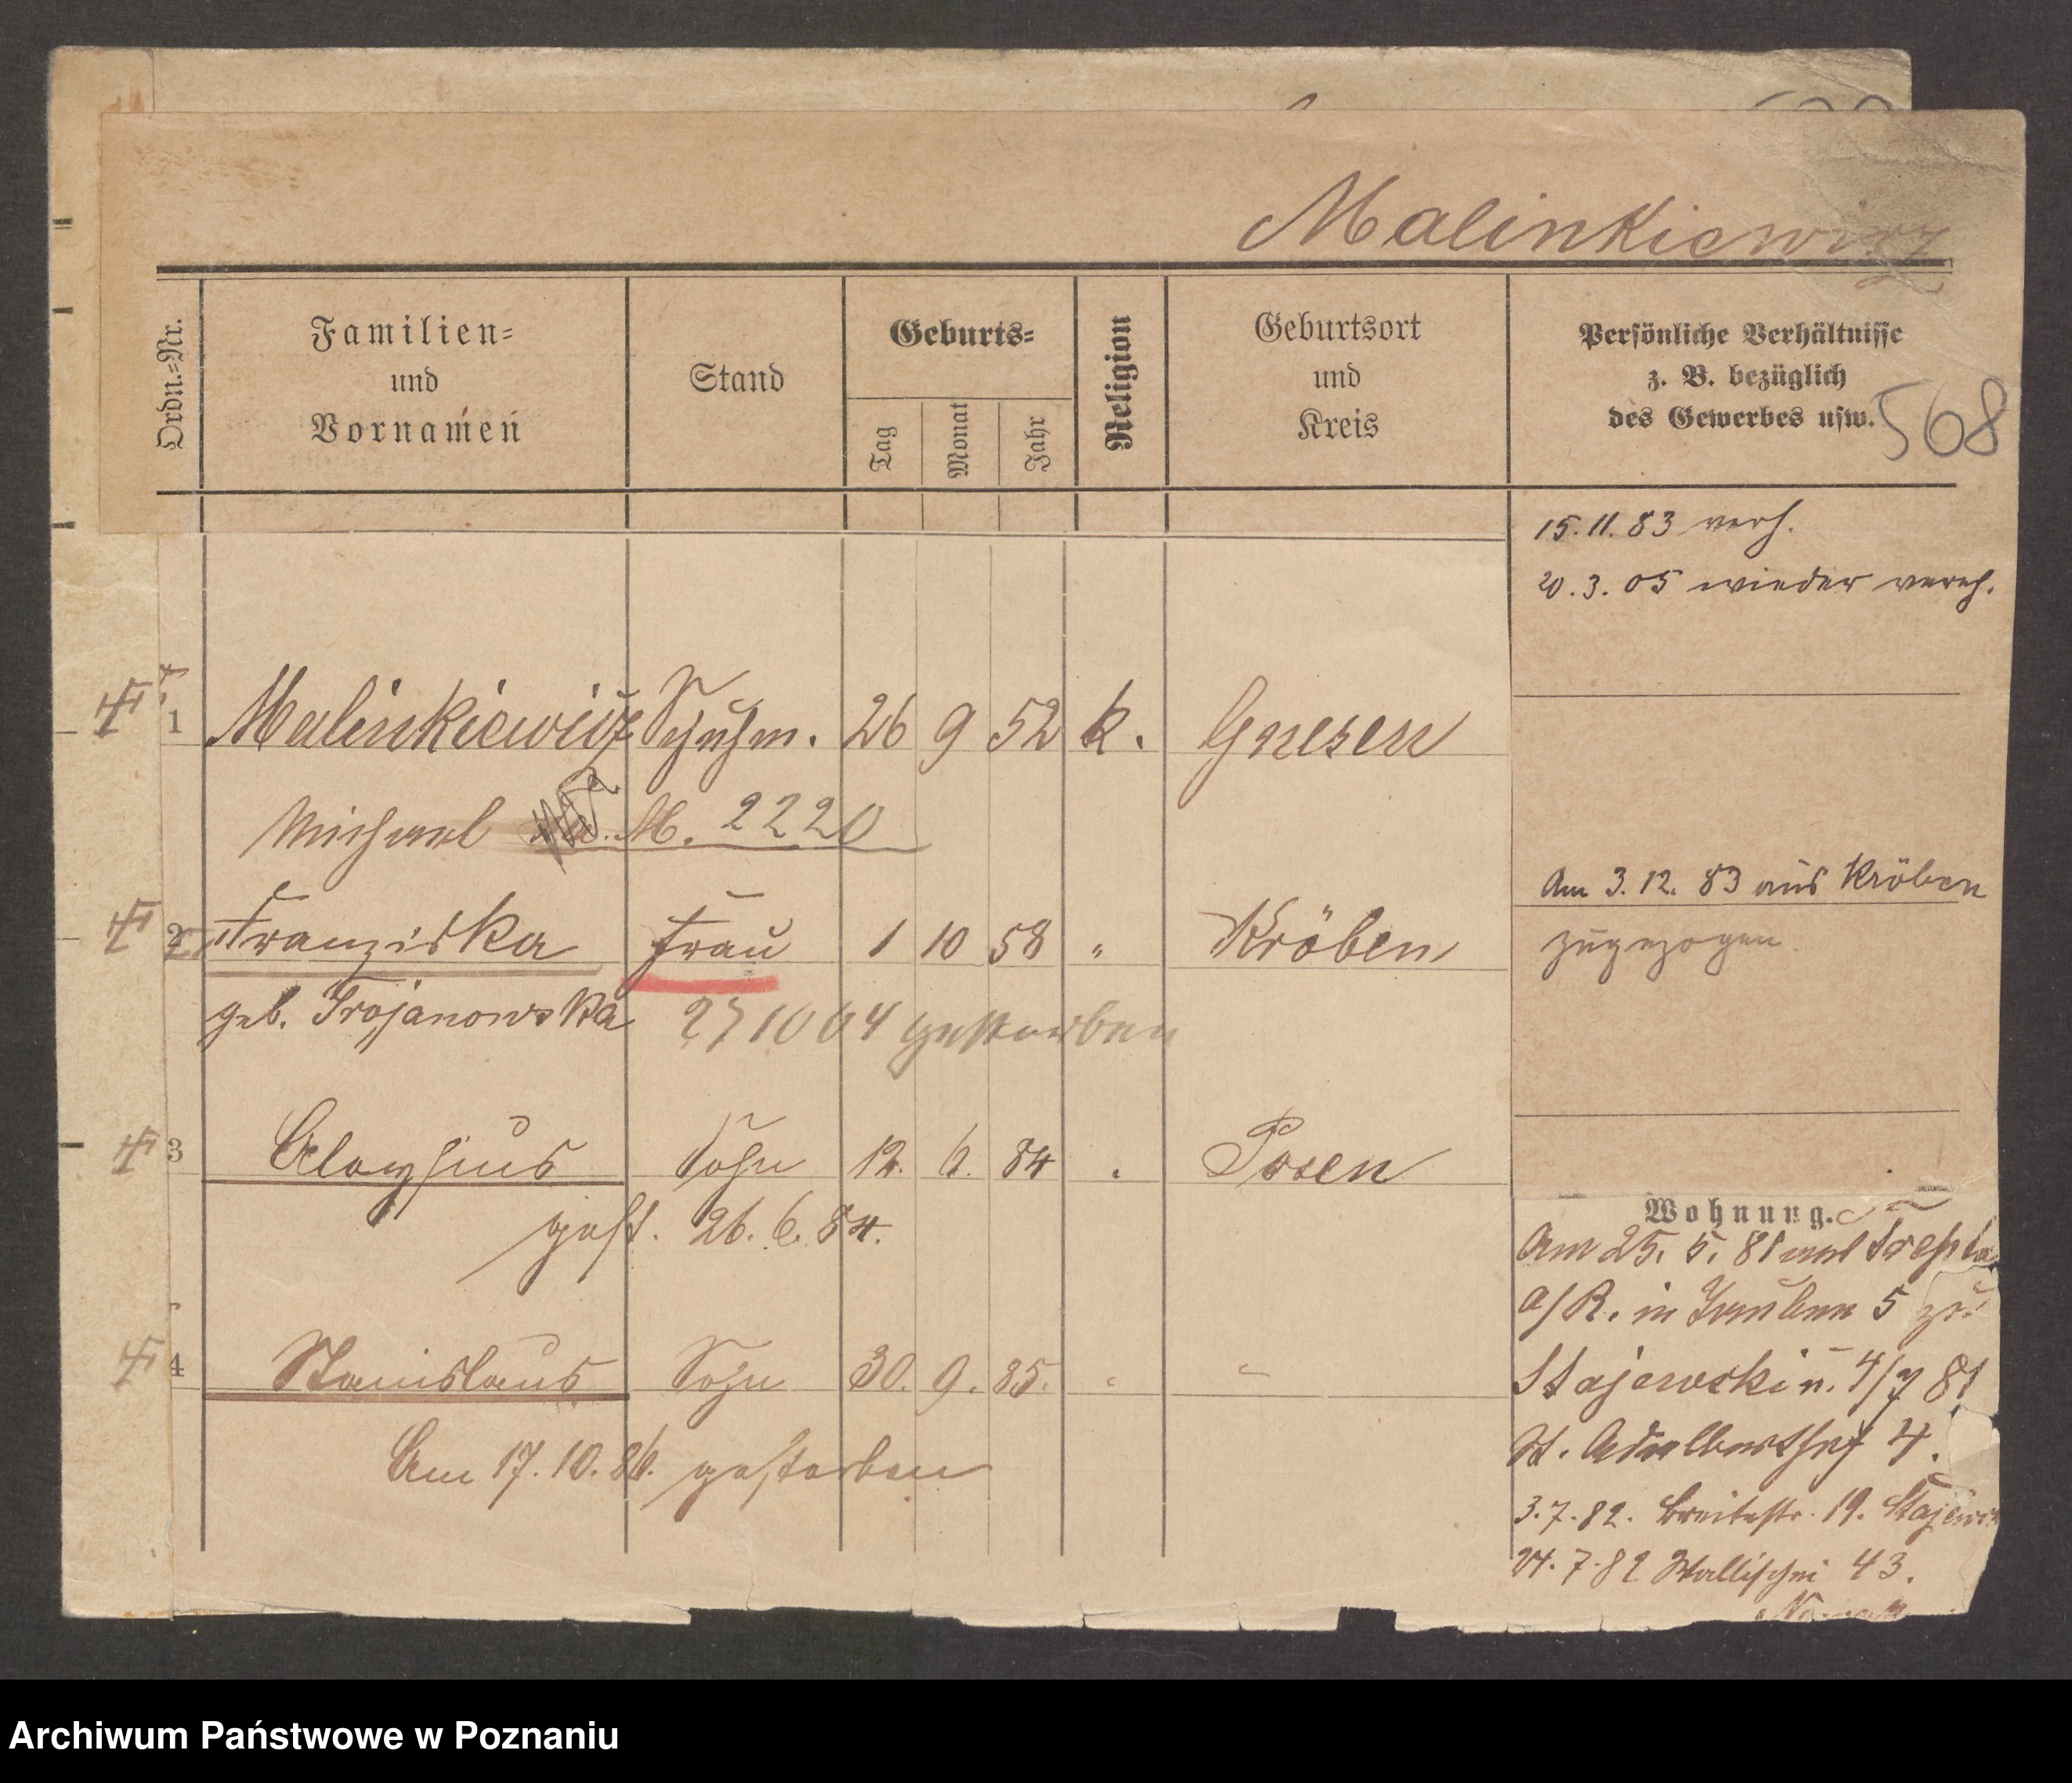 Malinkiewicz
Ordn.=Nr.
Familien=
und
Vornamen
Stand
Geburts=
Tag
Monat
Jahr
Religion
Geburtsort
und
Kreis
Persönliche Verhältnisse
z. B. bezüglich
des Gewerbes usw.
568
15.11.83 verh.
20.3.05 wieder vereh.
1 Malinkiewicz Schuhm. 26 9 52 k. Gnesen
Michael M. 2220
Am 3.12.83 aus Kröben
zugezogen
2 Franziska Frau 1 10 58 " Kröben
geb. Trojanowska 27 10 04 gestorben
3 Aloysius Sohn 12. 6. 84 " Posen
gest. 26.6.84.
4 Stanislaus Sohn 30. 9. 85. " "
Am 17.10.86. gestorben
Wohnung.
Am 25. 5. 81 von Trepto
a/R. in Gruben 5 zu
Stajewski n. 4/7 81
St. Adalberthof 4.
3.7.82. Breitestr. 19. Stajews
24.7.82 Wallischei 43.
Archiwum Państwowe w Poznaniu